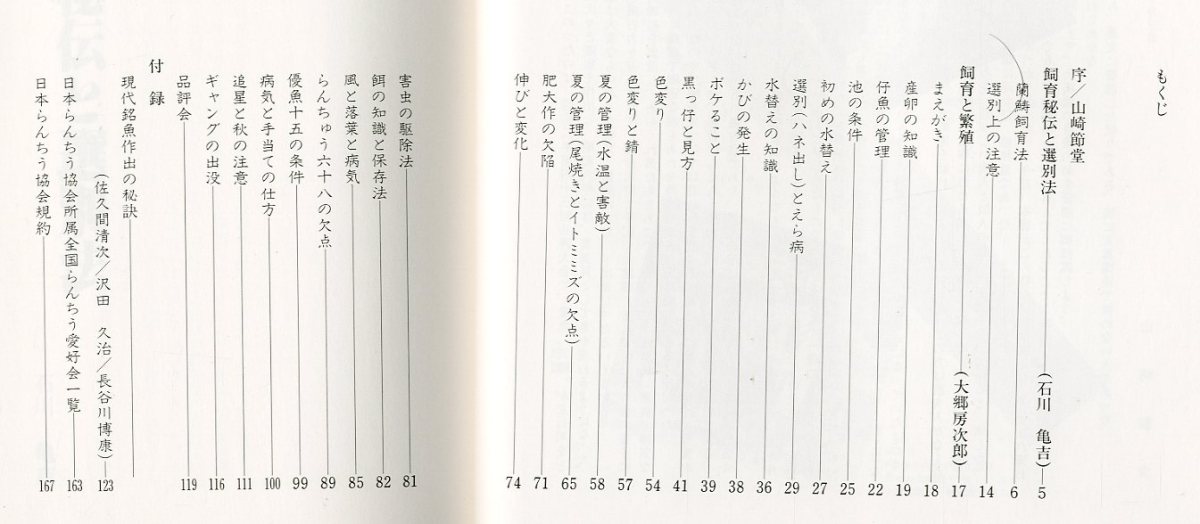 もくじ
序／山崎節堂
飼育秘伝と選別法 （石川　亀吉） 5
蘭鱗飼育法 6
選別上の注意 14
飼育と繁殖 （大郷房次郎） 17
まえがき 18
産卵の知識 19
仔魚の管理 22
池の条件 25
初めの水替え 27
選別（ハネ出し）とえら病 29
水替えの知識 36
かびの発生 38
ボケること 39
黒っ仔と見方 41
色変り 54
色変りと錆 57
夏の管理（水温と害敵） 58
夏の管理（尾焼きとイトミミズの欠点） 65
肥大作の欠陥 71
伸びと変化 74
害虫の駆除法 81
餌の知識と保存法 82
風と落葉と病気 85
らんちゅう六十八の欠点 89
優魚十五の条件 99
病気と手当ての仕方 100
追星と秋の注意 111
ギャングの出没 116
品評会 119
付　録
現代銘魚作出の秘訣
（佐久間清次／沢田　久治／長谷川博康） 123
日本らんちう協会所属全国らんちう愛好会一覧 163
日本らんちう協会規約 167